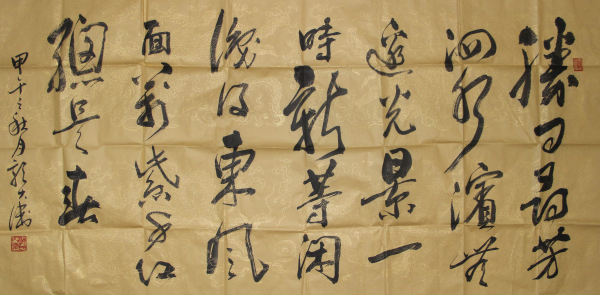 勝日尋芳
泗水濱無
邊光景一
時新等閑
識得東風
面萬紫千紅
總是春
甲午之秋月